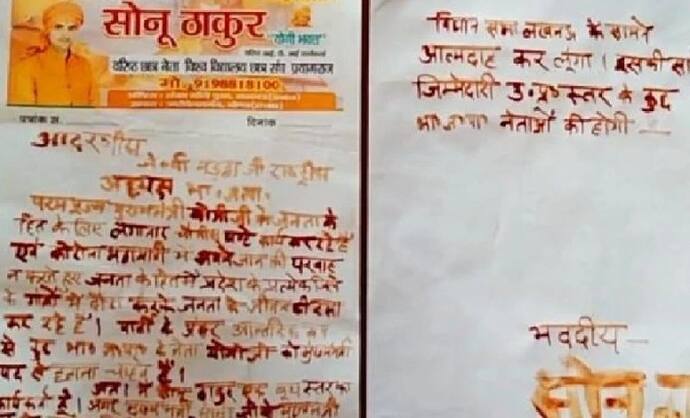 सोनू ठाकुर
"योगी भक्त"
वरिष्ठ छात्र नेता विश्व विद्यालय छात्र संघ प्रयागराज
मो. 9198818100
पत्रांक स.
दिनांक
आदरणीय
जे.पी नड्डा जी राष्ट्रीय
अध्यक्ष भा.ज.पा.
परम पूज्य मुख्यमंत्री योगीजी जनता के
हित के लिए लगातार चौबीस घण्टे कार्य कर रहे हैं
एवं कोरोना महामारी में अपने जान की परवाह
न करते हुए जनता के हित में प्रदेश के प्रत्येक
के गावों में दौरा करके जनता के जीवन की रक्षा
कर रहे है। पार्टी के आन्तरिक
से कुछ नेता योगीजी को मुख्यमंत्री
पद से हटाना चाहते हैं।
अतः मै सोनू ठाकुर एक बूथ स्तर का
कार्यकर्ता हूँ। अगर
विधान सभा लखनऊ के सामने
आत्मदाह कर लूंगा। इसकी सा
जिम्मेदारी उ.प्र स्तर के कुछ
भा.ज.पा नेताओं की होगी
भवदीय
सोनू